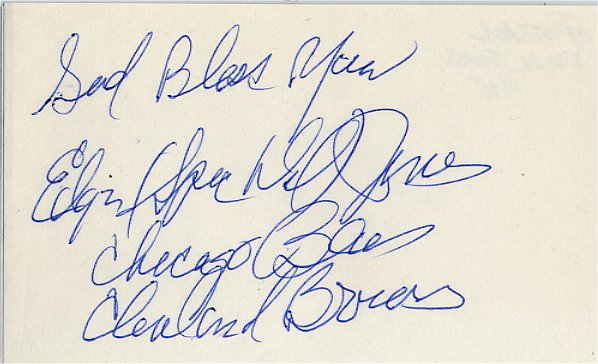 God Bless You
Edgar (Spec Del) Jones
Chicago Bears
Cleveland Browns